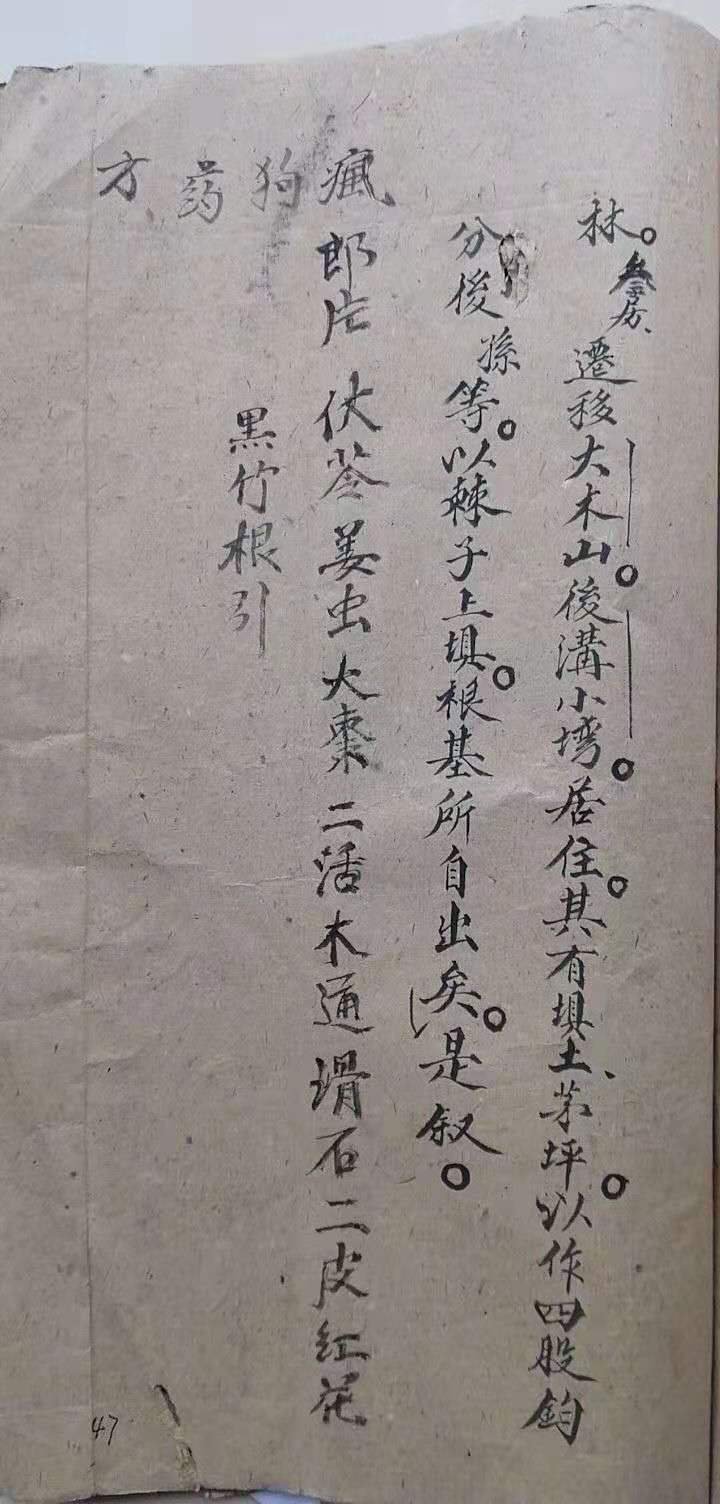 林。叁房、遷移大木山。後溝小塆。居住。其有埧土、茅坪。以作四股鈞
分後孫等。以棘子上埧。根基所自出矣。是叙。
瘋狗药方
郎片 伏苓姜虫大棗二活木通滑石二皮红花
黑竹根引
47